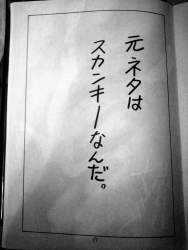 元ネタは
スカンキーなんだ。